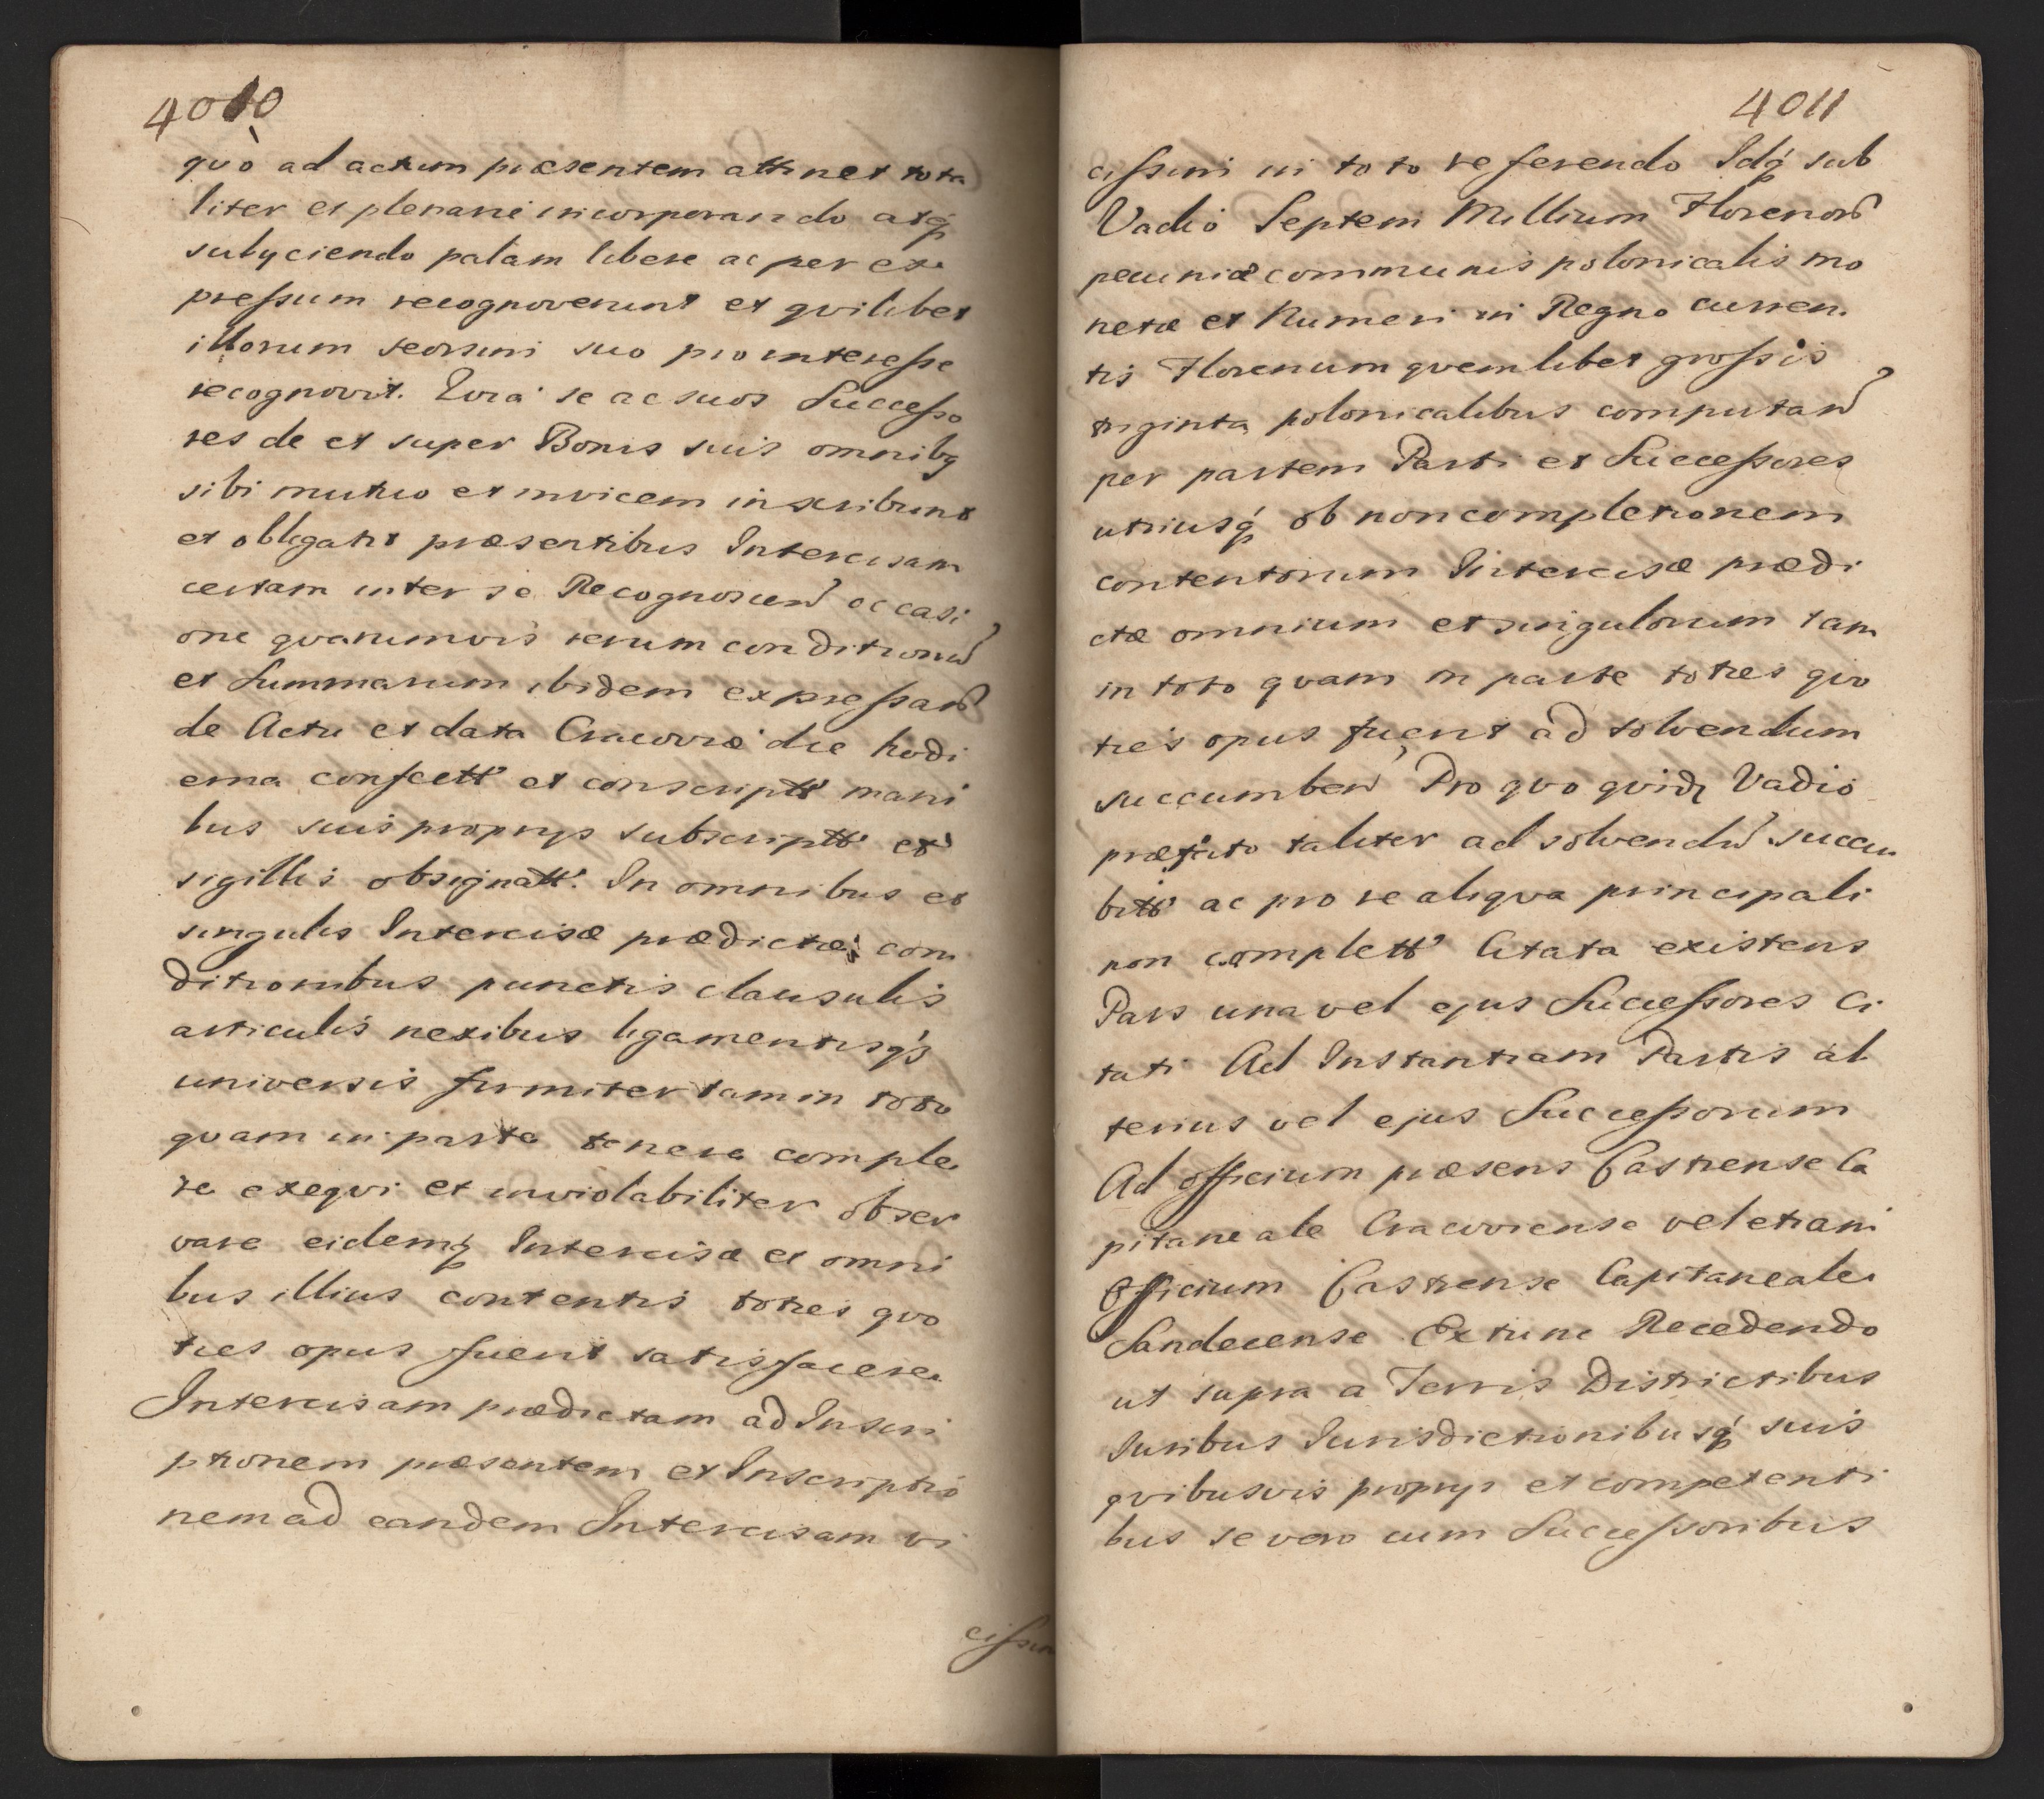 4010
quò ad actum præsentem attinet tota
liter et plenarie incorporando atq́
subyciendo palam libere ac per ex
preſsum recognoverunt et qvilibet
illorum seorsim suo pro intereſse
recognovit. Qvia se ac suos Succeſso
res de et super Bonis suis omnibq
sibi mutuo et invicem inscribunt
et obligant præsentibus Intercisam
certam inter se Recognoscen occasi
one qvarumvis rerum conditionu
et Summarum ibidem expreſsar
de Actu et data Cracoviæ die hodi
erna confectt et conscriptt mani
bus suis proprys subscriptt et
sigillis obsignatt. In omnibus et
singulis Intercisæ prædictæ con
ditionibus punctis clausulis
articulis nexibus ligamentisq́
universis firmiter tam in toto
qvam in parte tenere comple
re exeqvi et inviolabiliter obser
vare eidemq́ Intercisæ et omni
bus illius contentis toties qvo
ties opus fuerit satisfacere
Intercisam prædictam ad Inscri
ptionem præsentem et Inscriptio
nem ad eandem Intercisam vi
ciſsim
4011
ciſsim in toto referendo Idq́ sub
Vadio Septem Millium Florenor
pecuniæ communis polonicalis mo
netæ et Numeri in Regno curren
tis Florenum qvemlibet groſsis
triginta polonicalibus computan
per partem Parti et Succeſsores
utriusq́ ob noncompletionem
contentorum Intercisæ prædi
ctæ omnium et singulorum tam
in toto qvam in parte toties qvo
ties opus fuerit ad solvendum
succumben Pro qvo qvidq Vadio
præfato taliter ad solvendu succu
bitt ac pro re aliqva principali
non complett Citata existens
Pars una vel ejus Succeſsores Ci
tati Ad Instantiam Partis al
terius vel ejus Succeſsorum
Ad officium præsens Castrense Ca
pitaneale Cracoviense vel etiam
Officium Castrense Capitaneale
Sandecense Extunc Recedendo
ut supra a Terris Districtibus
Iuribus Iurisdictionibusq́ suis
qvibusvis proprys et competenti
bus se vero cum Succeſsoribus